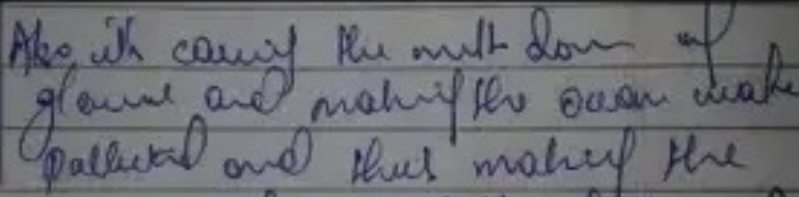 Also, it's causing the melt down of
glaciers and making the ocean water
polluted and thus making the